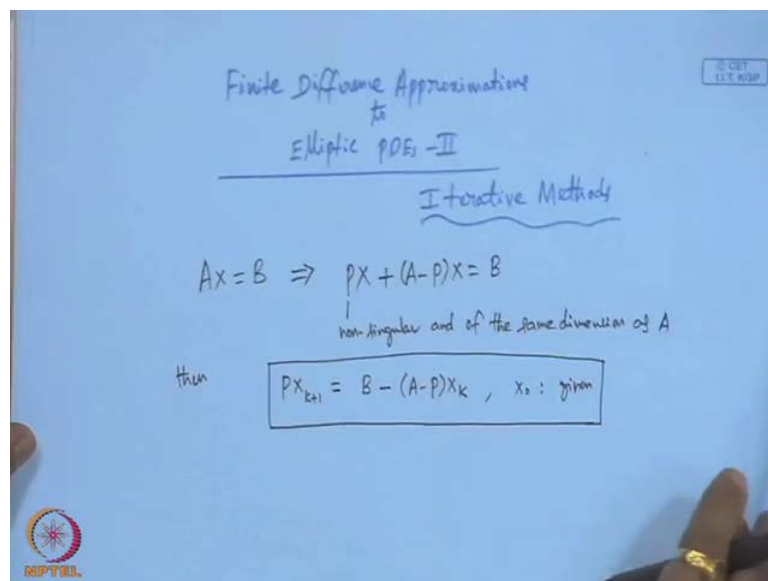 © CET
I.I.T. KGP
Finite Difference Approximations
to
Elliptic PDEs -II
Iterative Methods
AX = B ⇒ PX + (A-P)X = B
non-singular and of the same dimension of A
then PX_{k+1} = B - (A-P)X_k , X_0 : given
NPTEL